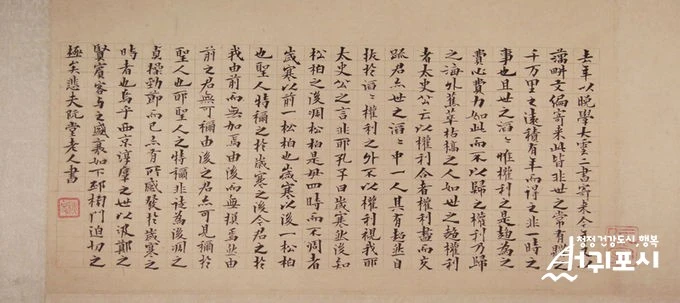 去年以晚學大雲二書寄來今年
藕畊文編寄來此皆非世之常有購之
千万里之遠積有年而得之非一時之
事也且世之滔〻惟權利之是趨爲之
費心費力如此而不以歸之權利乃歸
之海外蕉萃枯槁之人如世之趨權利
者太史公云以權利合者權利盡而交
疏君亦世之滔〻中一人其有超然自
拔於滔〻權利之外不以權利視我耶
太史公之言非耶孔子曰歲寒然後知
松柏之後凋松柏是毋四時而不凋者
歲寒以前一松柏也歲寒以後一松柏
也聖人特稱之於歲寒之後今君之於
我由前而無加焉由後而無損焉然由
前之君無可稱由後之君亦可見稱於
聖人也耶聖人之特稱非徒爲後凋之
貞操勁節而已亦有所感發於歲寒之
時者也烏乎西京淳厖之世以汲鄭之
賢賓客與之盛衰如下邳榜門迫切之
極矣悲夫阮堂老人書
청정 건강도시, 행복
서귀포시